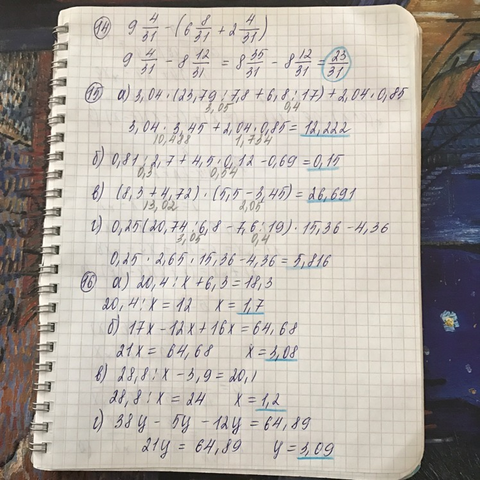 14 9 4/31 - (6 8/31 + 2 4/31)
9 4/31 - 8 12/31 = 8 35/31 - 8 12/31 = 23/31
15 а) 3,04 · (23,79 : 7,8 + 6,8 : 17) + 2,04 · 0,85
3,05 0,4
3,04 · 3,45 + 2,04 · 0,85 = 12,222
10,488 1,734
б) 0,81 : 2,7 + 4,5 · 0,12 - 0,69 = 0,15
0,3 0,54
в) (8,3 + 4,72) · (5,5 - 3,45) = 26,691
13,02 2,05
г) 0,25(20,74 : 6,8 - 7,6 : 19) · 15,36 - 4,36
3,05 0,4
0,25 · 2,65 · 15,36 - 4,36 = 5,816
16 а) 20,4 : x + 6,3 = 18,3
20,4 : x = 12 x = 1,7
б) 17x - 12x + 16x = 64,68
21x = 64,68 x = 3,08
в) 28,8 : x - 3,9 = 20,1
28,8 : x = 24 x = 1,2
г) 38y - 5y - 12y = 64,89
21y = 64,89 y = 3,09